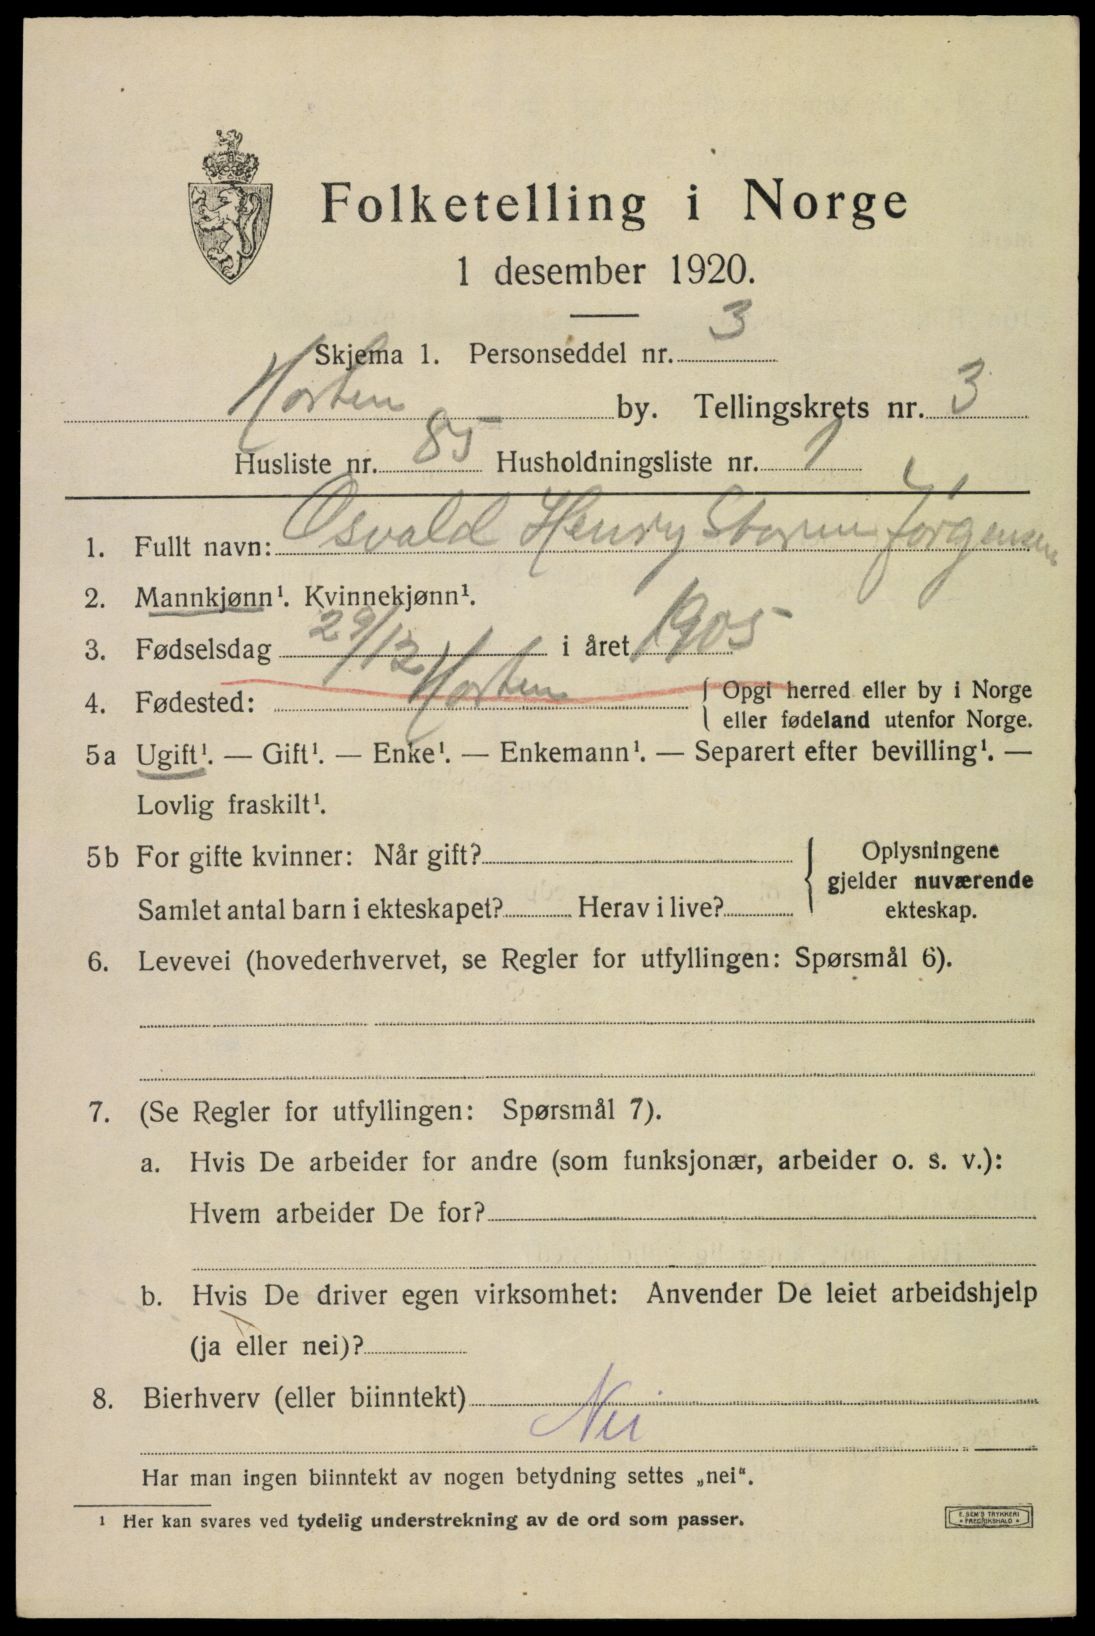 Folketelling i Norge
1 desember 1920.
Skjema 1. Personseddel nr. 3
Horten by. Tellingskrets nr. 3
Husliste nr. 85 Husholdningsliste nr. 1
1. Fullt navn: Osvald Henry Storm Jörgensen
2. Mannkjønn¹. Kvinnekjønn¹.
3. Fødselsdag 29/12 i året 1905
4. Fødested: Horten { Opgi herred eller by i Norge
eller fødeland utenfor Norge.
5a Ugift¹. — Gift¹. — Enke¹. — Enkemann¹. — Separert efter bevilling¹. —
Lovlig fraskilt¹.
5b For gifte kvinner: Når gift? { Oplysningene
gjelder nuværende
Samlet antal barn i ekteskapet? Herav i live? ekteskap.
6. Levevei (hovederhvervet, se Regler for utfyllingen: Spørsmål 6).
7. (Se Regler for utfyllingen: Spørsmål 7).
a. Hvis De arbeider for andre (som funksjonær, arbeider o. s. v.):
Hvem arbeider De for?
b. Hvis De driver egen virksomhet: Anvender De leiet arbeidshjelp
(ja eller nei)?
8. Bierhverv (eller biinntekt) Nei
Har man ingen biinntekt av nogen betydning settes „nei“.
¹ Her kan svares ved tydelig understrekning av de ord som passer.
E. SEM'S TRYKKERI
* FREDRIKSHALD *